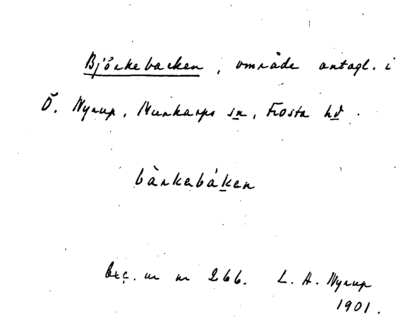 Björkebacken, område antagl. i
Ö. Nyrup, Munkarps sn, Frosta hd.
bàrkebáken
Acc. nr 266. L. A. Nyrup
1901.